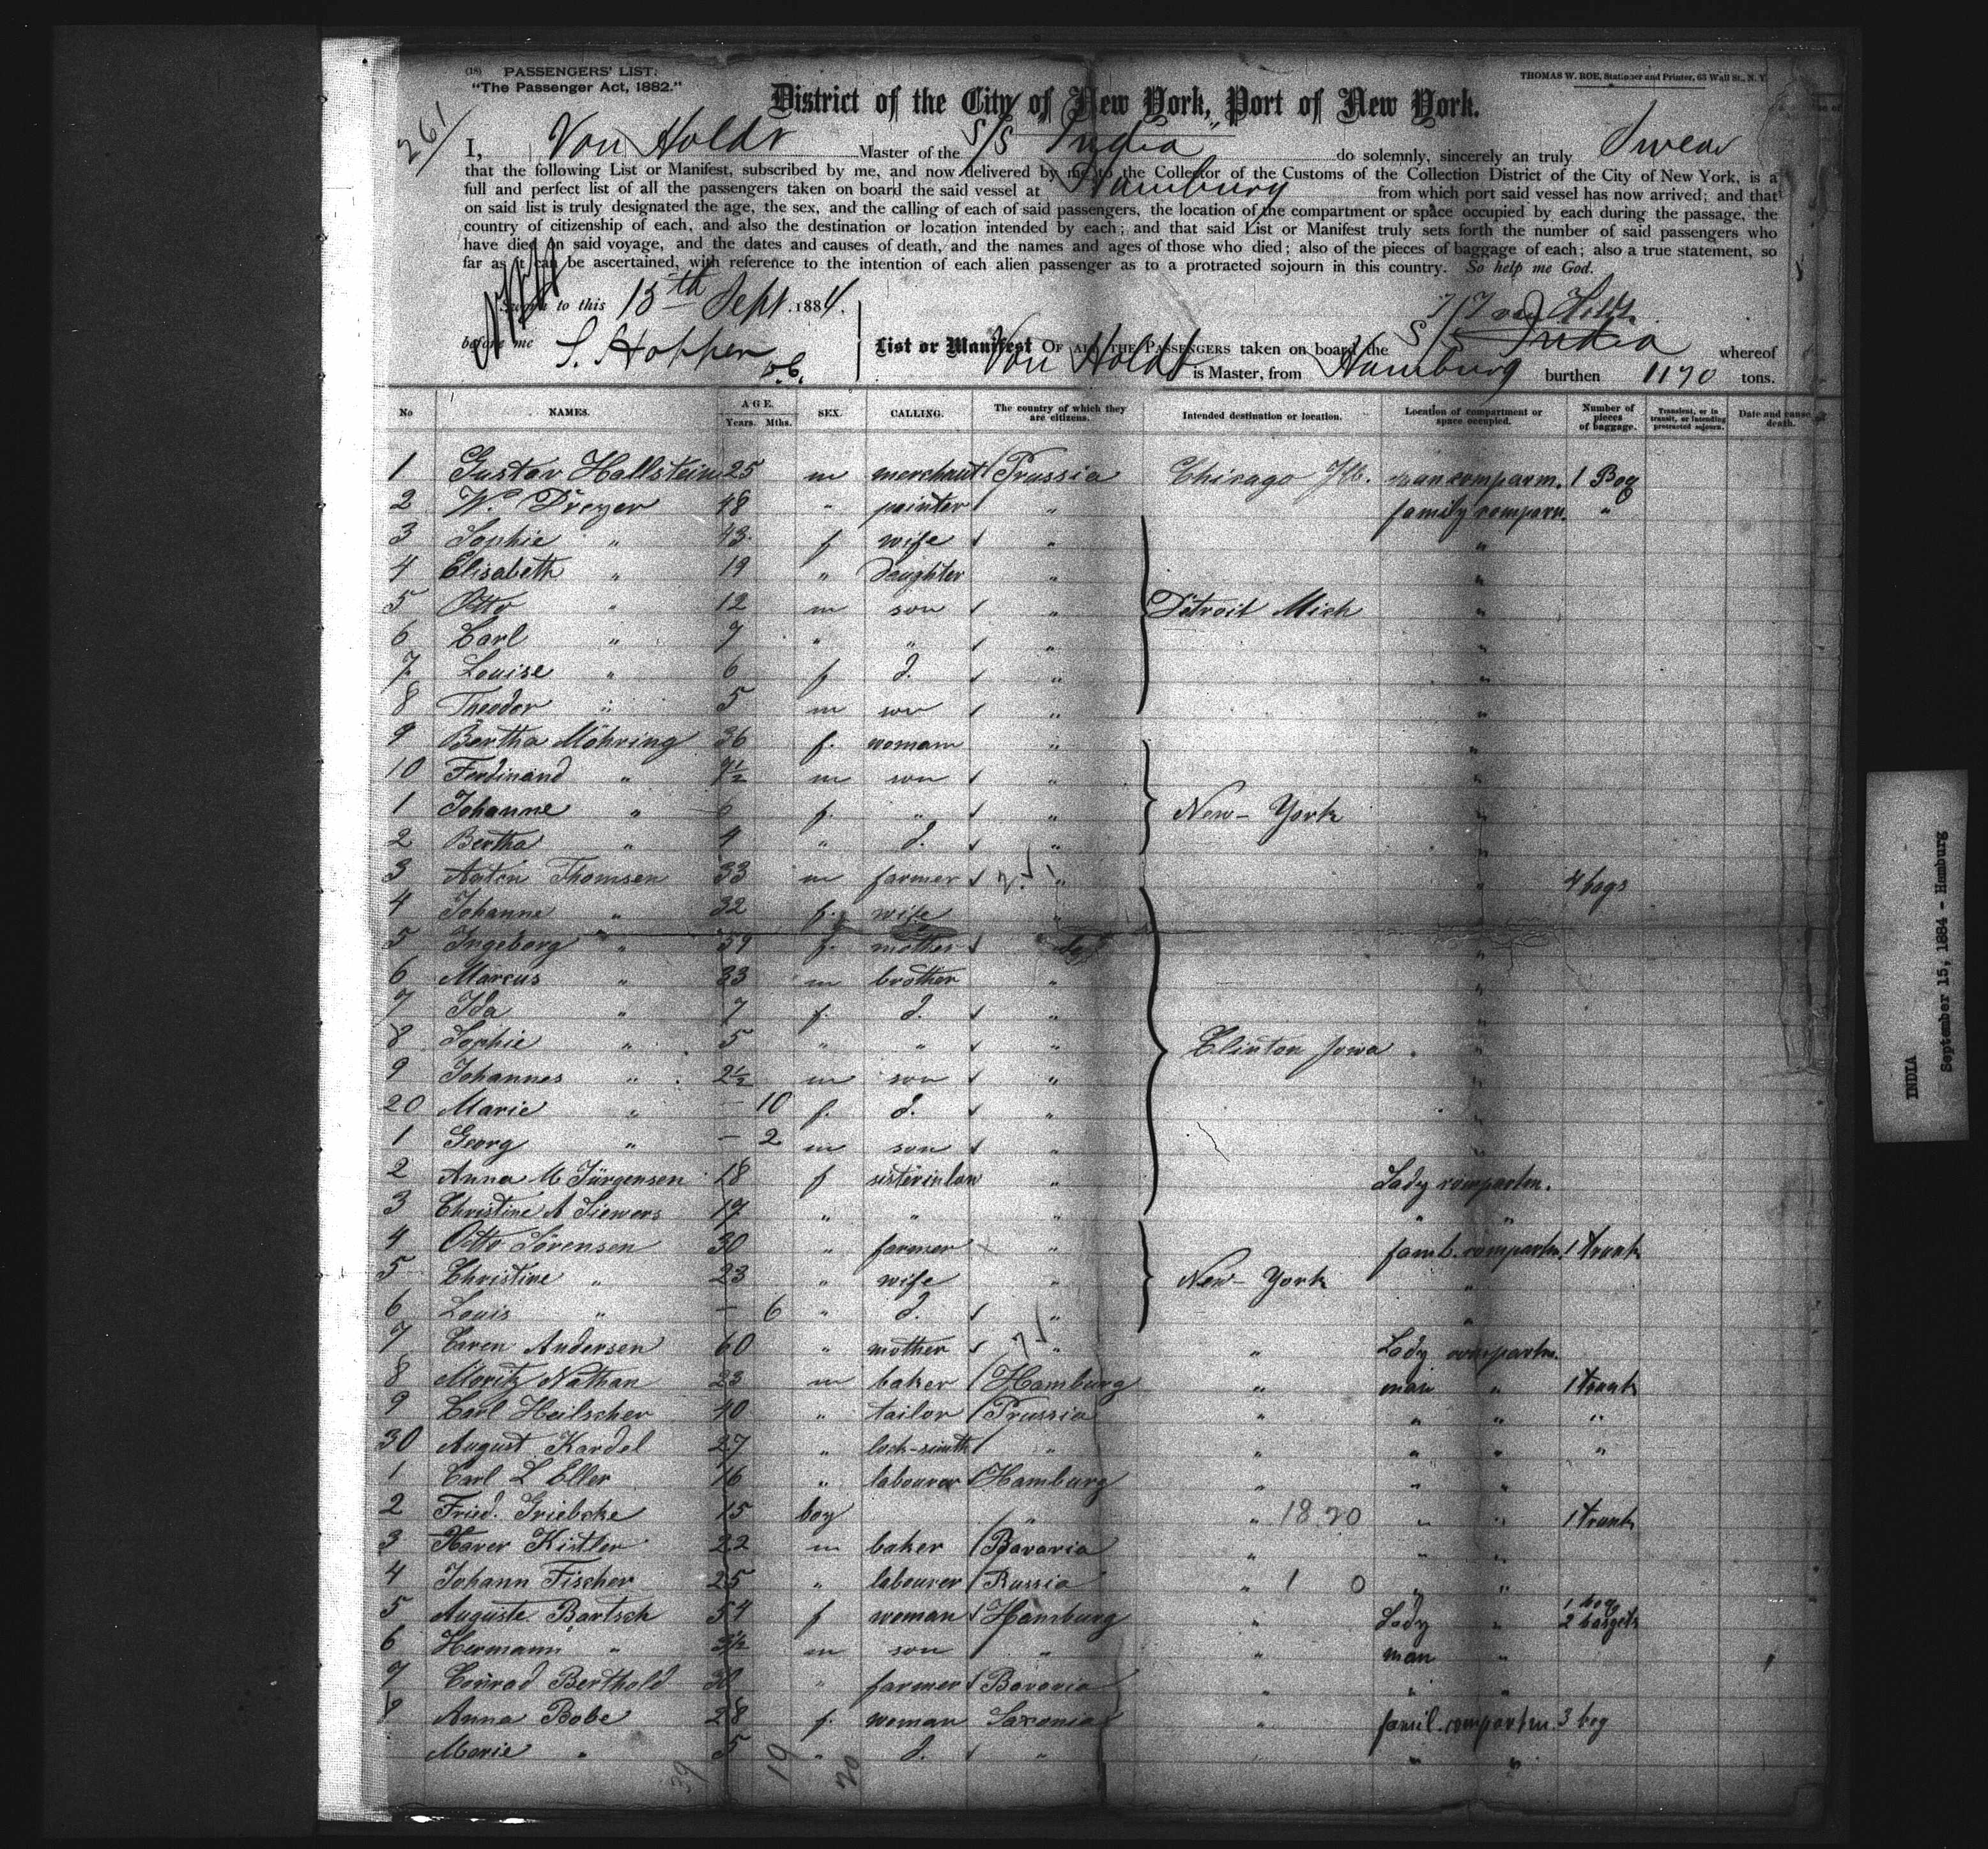 (18) PASSENGERS' LIST.
"The Passenger Act, 1882."
THOMAS W. ROE, Stationer and Printer, 63 Wall St., N. Y.
District of the City of New York, Port of New York.
261
I, Von Holdt Master of the S/S "India" do solemnly, sincerely an truly Swear
that the following List or Manifest, subscribed by me, and now delivered by me to the Collector of the Customs of the Collection District of the City of New York, is a
full and perfect list of all the passengers taken on board the said vessel at Hamburg from which port said vessel has now arrived; and that
on said list is truly designated the age, the sex, and the calling of each of said passengers, the location of the compartment or space occupied by each during the passage, the
country of citizenship of each, and also the destination or location intended by each; and that said List or Manifest truly sets forth the number of said passengers who
have died on said voyage, and the dates and causes of death, and the names and ages of those who died; also of the pieces of baggage of each; also a true statement, so
far as it can be ascertained, with reference to the intention of each alien passenger as to a protracted sojourn in this country. So help me God.
Sworn to this 15th Sept. 1884.
before me S. Hopper
List or Manifest OF ALL THE PASSENGERS taken on board the S/S India whereof
Von Holdt is Master, from Hamburg burthen 1170 tons.
No NAMES. AGE. Years. Mths. SEX. CALLING. The country of which they are citizens. Intended destination or location. Location of compartment or space occupied. Number of pieces of baggage. Transient, or in transit, or intending protracted sojourn. Date and cause death.
1 Gustav Hallstein 25 m merchant Prussia Chicago Ill. man comparm. 1 Bag
2 W. Dreyer 48 " painter " family comparm. "
3 Sophie " 43 f wife " "
4 Elisabeth " 19 " Daughter " "
5 Otto " 12 m son " Detroit Mich "
6 Carl " 7 " " " "
7 Louise " 6 f d. " "
8 Theodor " 5 m son " "
9 Bertha Möhring 36 f. womam " "
10 Ferdinand " 9½ m son " "
1 Johanne " 6 f. " " New-York "
2 Bertha " 4 " d. " "
3 Anton Thomsen 33 m farmer " " 4 bags
4 Johanne " 32 f. wife "
5 Ingeborg " 59 f. mother "
6 Marcus " 33 m brother " "
7 Ida " 7 f. d. " "
8 Sophie " 5 " " " Clinton Jowa "
9 Johannes " 2½ m son " "
20 Marie " – 10 f. d. " "
1 Georg " – 2 m son " "
2 Anna M Jürgensen 18 f sisterinlaw " Lady compartm.
3 Christine A Siewers 17 " " " " "
4 Otto Sörensen 30 " farmer " famil. compartm. 1 trunk
5 Christine " 23 " wife " New-York "
6 Louis " – 6 " d. " "
7 Caren Andersen 60 " mother " " Lady compartm.
8 Moritz Nathan 23 m baker Hamburg " man " 1 trunk
9 Carl Heilscher 40 " tailor Prussia " " " "
30 August Kardel 27 " lock-smith " " " " "
1 Carl L Eller 16 " labourer Hamburg " " "
2 Fried. Griebcke 15 boy " " 18 20 " " 1 trunk
3 Xaver Kistler 22 m baker Bavaria " " "
4 Johann Fischer 25 " labourer Russia " 1 0 " "
5 Auguste Bartsch 54 f woman Hamburg " Lady " 1 bag
6 Hermann " m son " " man "
7 Conrad Berthold 30 " farmer Bavaria " " "
8 Anna Bobe 28 f. woman Saxonia " famil. compartm. 3 bag
Marie " 5 " d. " " " "
39 19 20
INDIA
September 15, 1884 - Hamburg